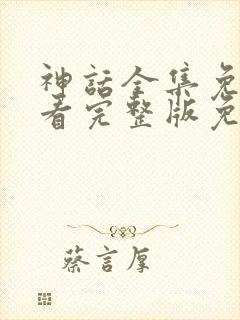 神话全集免
看完整版免
蔡言厚